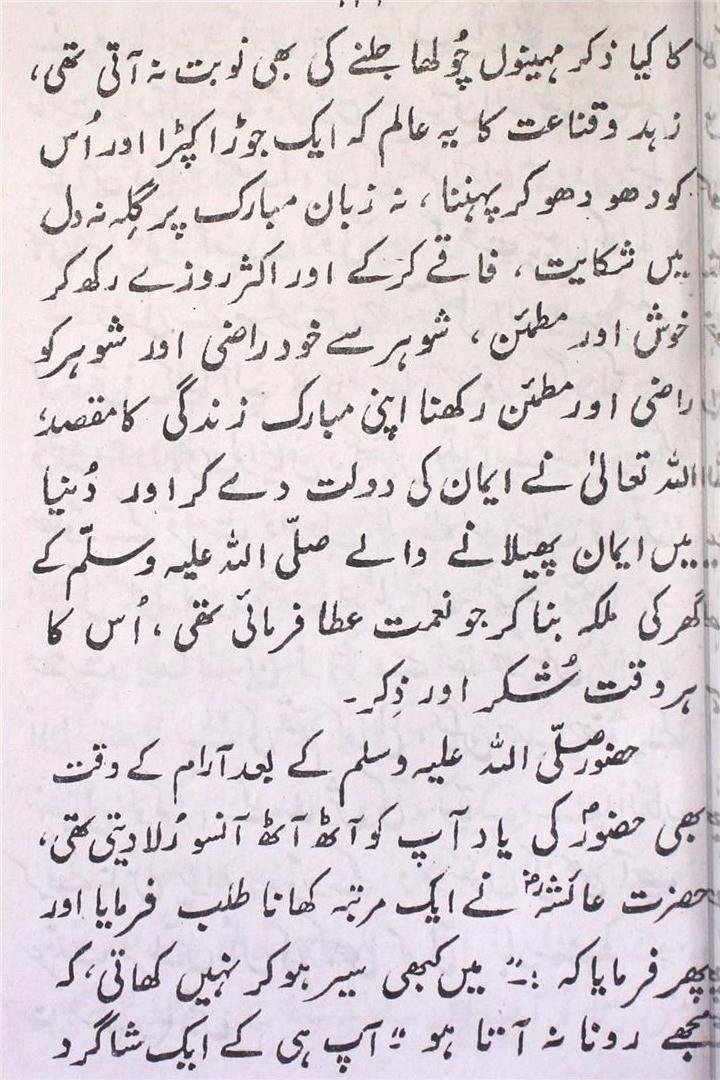 کا کیا ذکر مہینوں چُولھا جلنے کی بھی نوبت نہ آتی تھی،
زہد و قناعت کا یہ عالم کہ ایک جوڑا کپڑا اور اُس
کو دھو دھو کر پہننا، نہ زبان مبارک پر گِلہ نہ دل
میں شکایت، فاقے کر کے اور اکثر روزے رکھ کر
خوش اور مطمئن، شوہر سے خود راضی اور شوہر کو
راضی اور مطمئن رکھنا اپنی مبارک زندگی کا مقصد،
اللہ تعالیٰ نے ایمان کی دولت دے کر اور دُنیا
میں ایمان پھیلانے والے صلّی اللہ علیہ وسلّم کے
گھر کی ملکہ بنا کر جو نعمت عطا فرمائی تھی، اُس کا
ہر وقت شُکر اور ذِکر۔
حضور صلّی اللہ علیہ وسلم کے بعد آرام کے وقت
بھی حضورؐ کی یاد آپ کو آٹھ آٹھ آنسو رُلا دیتی تھی،
حضرت عائشہؓ نے ایک مرتبہ کھانا طلب فرمایا اور
پھر فرمایا کہ :۔" میں کبھی سیر ہو کر نہیں کھاتی، کہ
مجھے رونا نہ آتا ہو" آپ ہی کے ایک شاگرد